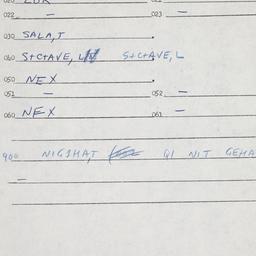 022 – 023 –
030 SALA, T
040 S+C+AVE, L S+C+AVE, L
050 NEX
051 – 052 –
060 NEX 061 –
900 NIGSHAT QI NIT GEHA
–